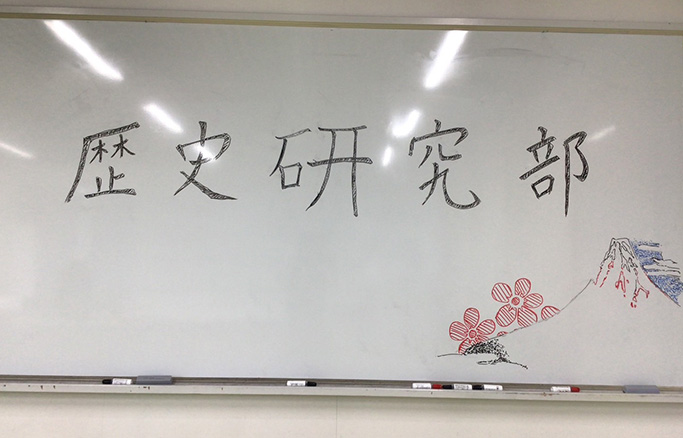 歴史研究部